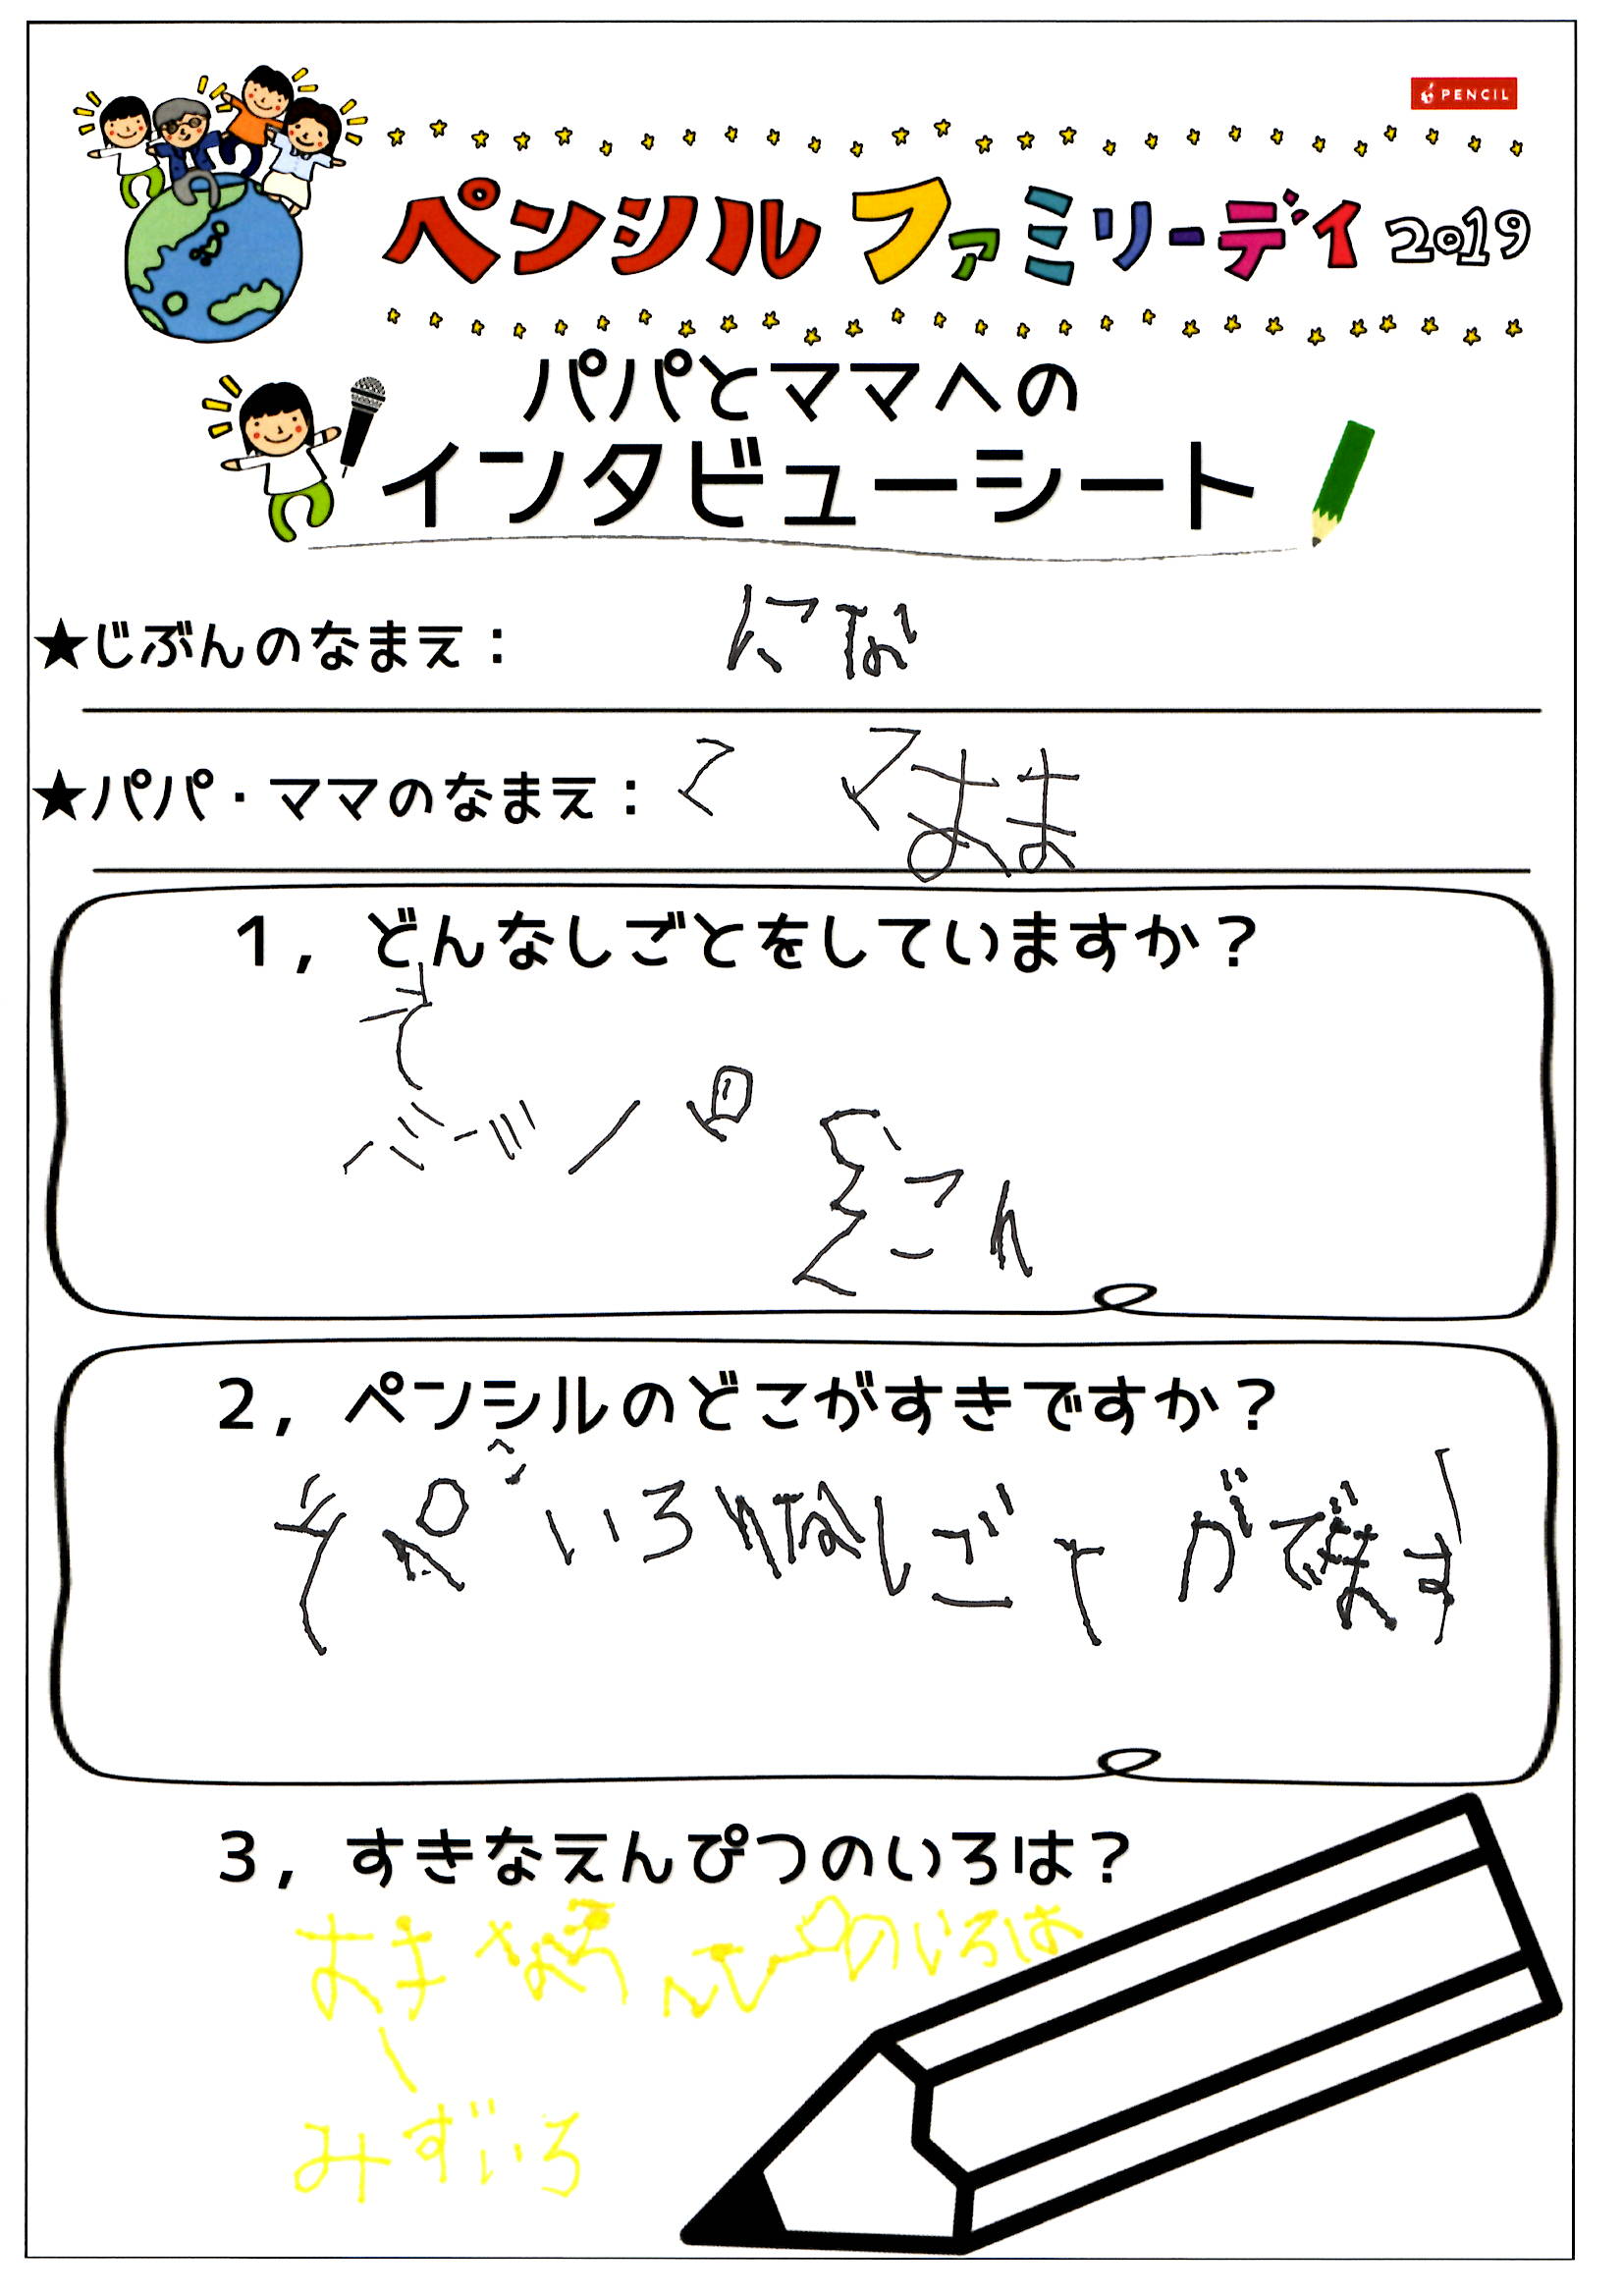 PENCIL
ペンシル ファミリーデイ 2019
パパとママへの
インタビューシート
★じぶんのなまえ：　にな
★パパ・ママのなまえ：　ママ
1，どんなしごとをしていますか？
2，ペンシルのどこがすきですか？
いろんなしごとができます
3，すきなえんぴつのいろは？
のいろは
みずいろ